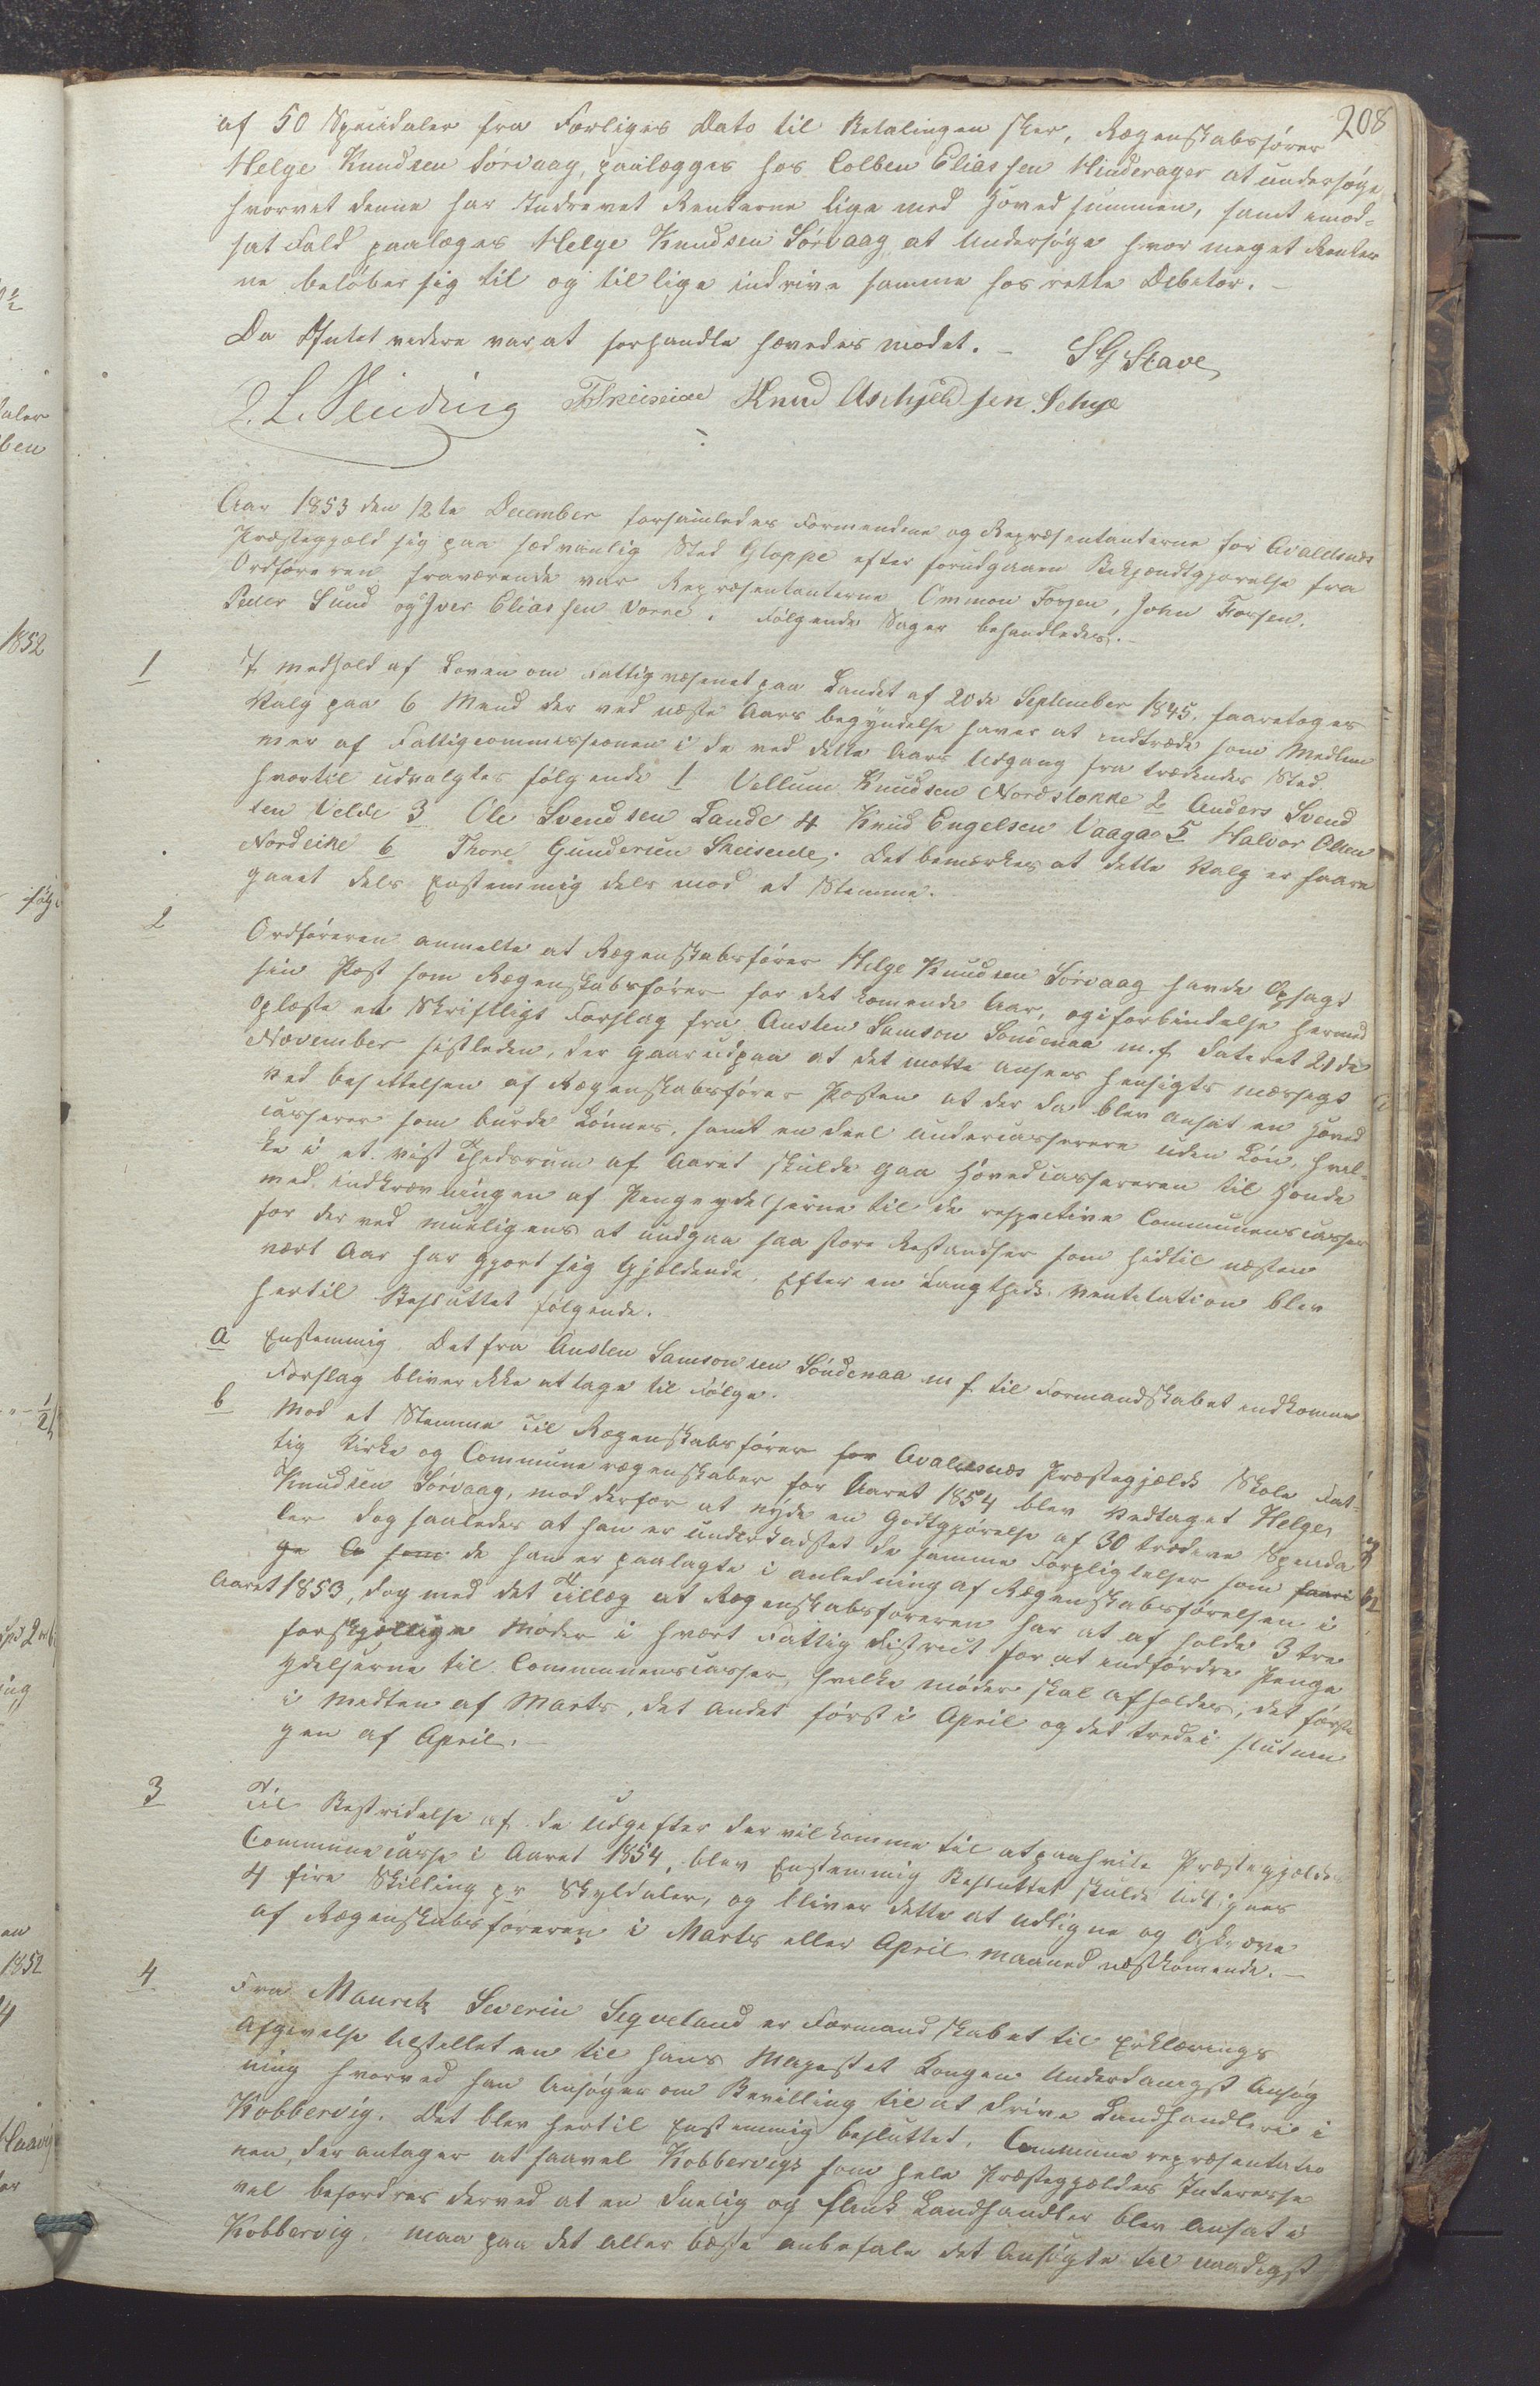 208
af 50 Speciedaler fra Forligets Dato til Betalingen sker, Regenskabsfører
Helge Knudsen Sørvaag, paalegges hos Colben Eliassen Hinderager at undersøge,
hvorvet denne har Indrevet Renterne lige med Hovedsummen, samt imod-
sat Fald paalæges Helge Knudsen Sørvaag at Undersøge hvor meget Renter
ne beløber sig til og tillige indrive samme hos rette Debitor. -
Da Intet vedere var at forhandle hævedes mødet. - SG Stave
J. L. Vending Knud Aschjeldsen Sehye
Aar 1853 den 12te December forsamledes Formendene og Repræsentanterne for Avaldsnes
Præstegjæld sig paa sedvanlig Sted Gloppe efter forudgaaen Bekjendtgjørelse fra
Ordføreren fraværende var Representanterne Ommon Fosen, John Fosen,
Peder Sund og Iver Eliassen Vorre. Følgende Sager behandledes. -
1 I medhold af Loven om Fattigvesenet paa Landet af 20de September 1845, foretoges
Valg paa 6 Mend der ved neste Aars begyndelse haver at indtræde som Medlem
mer af Fattigcommissionen i de ved dette Aars Udgang fra trædendes Sted.
hvortil udvalgtes følgende 1 Vellum Knudsen Nordstokke 2 Anders Svend
sen Velde 3 Ole Svendsen Lande 4 Knud Engelsen Vaage 5 Halvor Olsen
Nordeike 6 Thore Gundersen Skeiseide. Det bemærkes at dette Valg er foore
gaaet dels Enstemmig dels mod et Stemme.
2 Ordføreren anmelte at Regenskabsfører Helge Knudsen Sørvaag havde Opsagt
sin Post som Regenskabsfører for det komende Aar, og i forbindelse hermed
oplæste et Skriftligt Forslag fra Austen Samson Søndenaa m.f. dateret 21de
November sistleden, der gaar ud paa at det motte ansees hensigts mæssigt
ved besettelsen af Regenskabsfører Posten at der da blev ansat en Hoved
casserer som burde Lønnes, samt en deel undercasserere uden Løn, hvil-
ke i et vist Thidsrum af Aaret skulde gaa Hovedcassereren til Honde
med indkrævningen af Pengeydelserne til de respective Communenscasser
for der ved mueligens at undgaa saa store Restandser som hidtil næsten
vært Aar har gjort sig gjældende. Efter en Langthids Ventelation blev
hertil Besluttet følgende.
a Enstemmig Det fra Austen Samsonsen Søndenaa m f. til Formandskabet indkomne
Forslag bliver ikke at tage til Følge.
b Mod et Stemme Til Regenskabsfører for Avaldsnæs Præstegjælds Skole Fat-
tig Kirke og Communeregenskaber for Aaret 1854 blev Vedtaget Helge
Knudsen Sørvaag, mod derfor at nyde en Godtgjørelse af 30 tredeve Specida
ler dog saaledes at han er underkastet de samme Forpligtelser som faari
ge som de han er paalagte i anledning af Regenskabsførelsen i
Aaret 1853, dog med det Tillæg at Regenskabsføreren har at af holde 3 tre
forskjællige Møder i hvært Fattig District for at indfordre Penge
ydelserne til Communenscasser, hvilke møder skal afholdes, det første
i Medten af Marts, det andet først i April og det trede i Slutnin
gen af April. -
3 Til Bestridelse af de Udgefter der vil komme til at paahvile Præstegjeldets
Communecasse i Aaret 1854, blev Enstemmig Besluttet skulde Udlignes
4 fire Skilling pr Skylddaler, og bliver dette at udligne og Opkræve
af Regenskabsføreren i Marts eller April maaned nestkomende. -
4 Fra Mauretz Severin Seqveland er Formandskabet til Erklærings
Afgivelse tilstellet en til hans Majestet Kongen Underdanigst Ansøg
ning hvorved han Ansøger om Bevilling til at drive Landhandleri i
Kobbervig. Det blev hertil Enstemmig besluttet. Communerepræsentatio
nen, der antager at saavel Kobbervigs som hele Præstegjeldets Interesse
vel befordres derved at en duelig og flink Landhandler blev Ansat i
Kobbervig, maa paa det aller beste anbefale det Ansøgte til naadigst